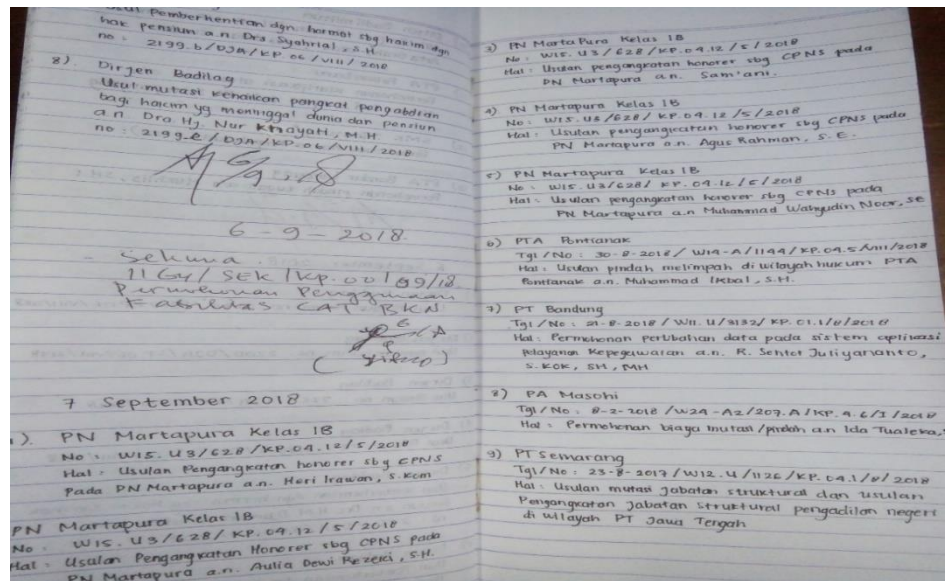 Usul Pemberhentian dgn. hormat sbg hakim dgn
hak pensiun a.n. Drs. Syahrial, S.H.
no : 2199.b/DJA/KP.06/VIII/2018
8). Dirjen Badilag
Usul mutasi kenaikan pangkat pengabdian
bagi hakim yg meninggal dunia dan pensiun
a.n Dra. Hj. Nur Khayati, M.H.
no : 2199.e/DJA/KP.06/VIII/2018
6 - 9 - 2018.
- Sekma
1164/SEK/KP.00/09/18
Permohonan Penggunaan
Fasilitas CAT BKN
7 September 2018
1). PN Martapura Kelas 1B
No : W15.U3/628/KP.04.12/5/2018
Hal : Usulan Pengangkatan honorer sbg CPNS
Pada PN Martapura a.n. Heri Irawan, S.Kom
PN Martapura Kelas 1B
No : W15.U3/628/KP.04.12/5/2018
Hal : Usulan Pengangkatan Honorer sbg CPNS pada
PN Martapura a.n. Aulia Dewi Rezeki, S.H.
3) PN MartaPura Kelas 1B
No : W15.U3/628/KP.04.12/5/2018
Hal : Usulan pengangkatan honorer sbg CPNS pada
PN Martapura a.n. Sam'ani.
4) PN Martapura Kelas 1B
No : W15.U3/628/KP.04.12/5/2018
Hal : Usulan pengangkatan honorer sbg CPNS pada
PN Martapura a.n. Agus Rahman, S.E.
5) PN Martapura Kelas 1B
No : W15.U3/628/KP.04.12/5/2018
Hal : Usulan pengangkatan honorer sbg CPNS pada
PN Martapura a.n Muhammad Wahyudin Noor, SE
6) PTA Pontianak
Tgl/No : 30-8-2018/W14-A/1144/KP.04.5/VIII/2018
Hal : Usulan pindah melimpah di wilayah hukum PTA
Pontianak a.n. Muhammad Ikbal, S.H.
7) PT Bandung
Tgl/No : 21-8-2018/W11.U/3132/KP.01.1/8/2018
Hal : Permohonan perubahan data pada sistem aplikasi
pelayanan Kepegawaian a.n. R. Sentot Juliyananto,
S.KOK, SH, MH
8) PA Masohi
Tgl/No : 8-2-2018/W24-A2/207.A/KP.4.6/3/2018
Hal : Permohonan biaya mutasi/pindah a.n Ida Tualeka,
9) PT Semarang
Tgl/No : 23-8-2017/W12.U/1126/KP.04.1/8/2018
Hal : Usulan mutasi jabatan struktural dan usulan
Pengangkatan jabatan struktural pengadilan negeri
di wilayah PT Jawa Tengah